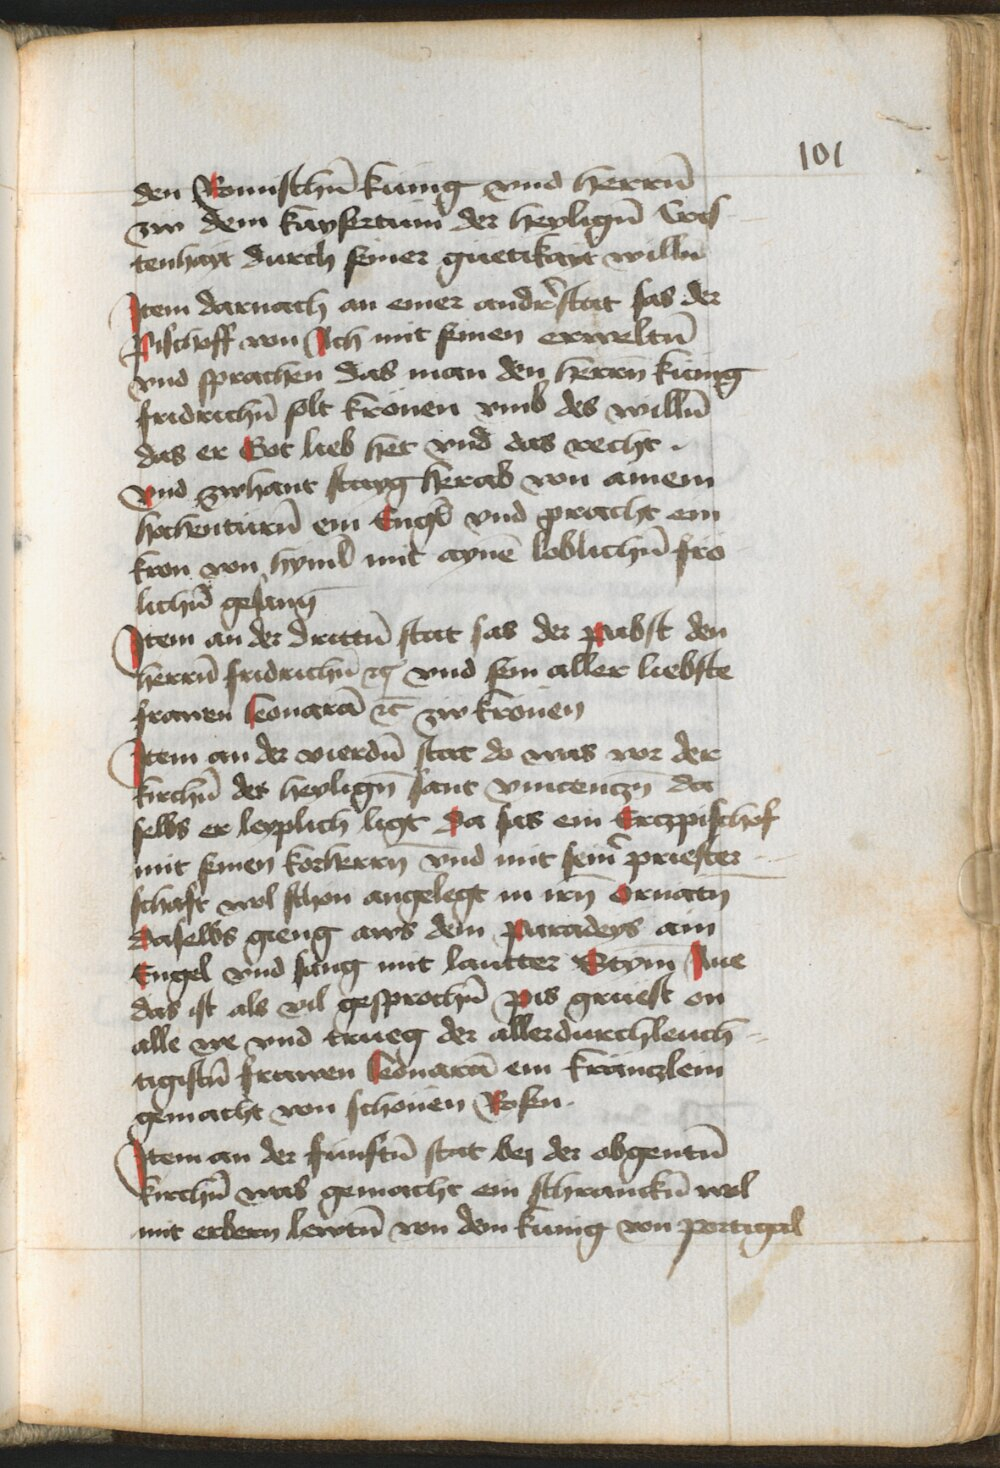 101
den Romischn̄ kunig vnd herrn̄
zw dem kaysertum der heylign̄ Cris
tenhayt durch seiner guetikayt willn
Item darnach an einer andr̄ stat sas der
Pischoff von Ach mit seinen erweltn̄
vnd sprachen das man den herrn̄ kunig
fridrichn̄ solt kronen vmb des willn̄
das er Got lieb het vnd das recht .
Vnd zwhant stayg herab von ainem
hochenturn̄ ein Engl̄ vnd pracht ein
kron von hyml̄ mit aynē loblichn̄ fro
lichn̄ gesanḡ
Item an der drittn̄ stat sas der Pabst den
herrn̄ fridrichn̄ ꝛc vnd sein aller liebste
frawen Leonarā ꝛc zw kronen
Item an der vierdn̄ stat do was vor der
kirchn̄ des heylign̄ sant vincenczn̄ da
selbs er leyplich ligt Da sas ein Erczpischof
mit seinen korherrn̄ vnd mit seīr priester
schaft wol schon angelegt in irn̄ Ornatn̄
Daselbs gieng aws dem Paradeys ain
Engel vnd sang mit lautter Stym̄ Aue
das ist als vil gesprochn̄ Pis gruest on
alle we vnd trueg der allerdurchleuch
tigistn̄ frawen Leonarā ein kranczlein
gemacht von schonen Rosen .
Item an der funftn̄ stat bei der obgentn̄
kirchn̄ was gemacht ein schranckn̄ wol
mit erbern lewtn̄ von dem kunig von portigal